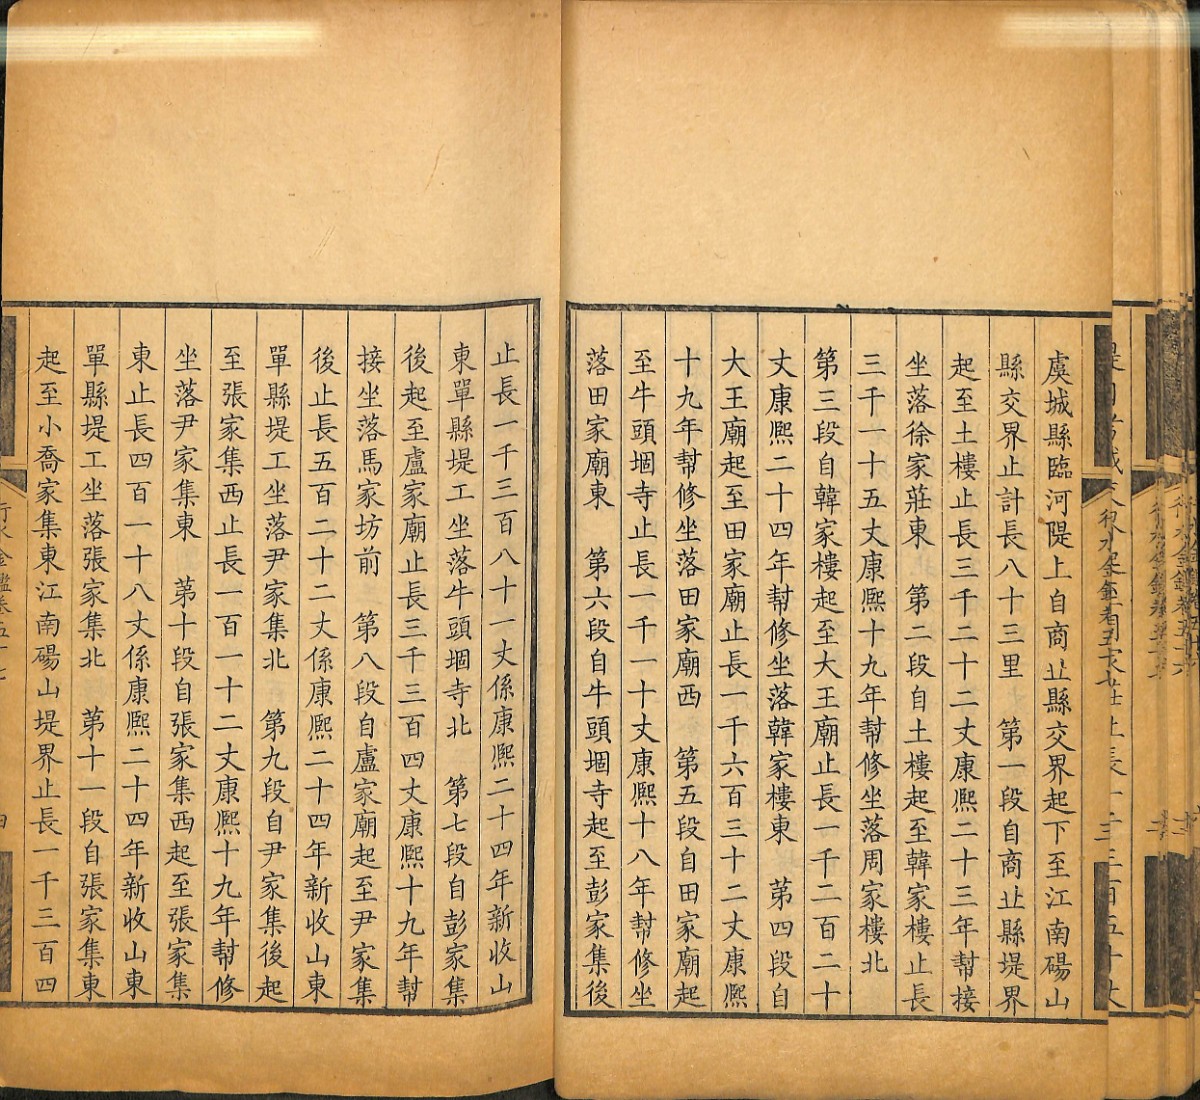 虞城縣臨河隄上自商𠀉縣交界起下至江南碭山
縣交界止計長八十三里　第一段自商𠀉縣堤界
起至土樓止長三千二十二丈康熙二十三年幫接
坐落徐家莊東　第二段自土樓起至韓家樓止長
三千一十五丈康熙十九年幫修坐落周家樓北
第三段自韓家樓起至大王廟止長一千二百二十
丈康熙二十四年幫修坐落韓家樓東　第四段自
大王廟起至田家廟止長一千六百三十二丈康熙
十九年幫修坐落田家廟西　第五段自田家廟起
至牛頭堌寺止長一千一十丈康熙十八年幫修坐
落田家廟東　第六段自牛頭堌寺起至彭家集後
止長一千三百八十一丈係康熙二十四年新收山
東單縣堤工坐落牛頭堌寺北　第七段自彭家集
後起至盧家廟止長三千三百四丈康熙十九年幫
接坐落馬家坊前　第八段自盧家廟起至尹家集
後止長五百二十二丈係康熙二十四年新收山東
單縣堤工坐落尹家集北　第九段自尹家集後起
至張家集西止長一百一十二丈康熙十九年幫修
坐落尹家集東　第十段自張家集西起至張家集
東止長四百一十八丈係康熙二十四年新收山東
單縣堤工坐落張家集北　第十一段自張家集東
起至小喬家集東江南碭山堤界止長一千三百四